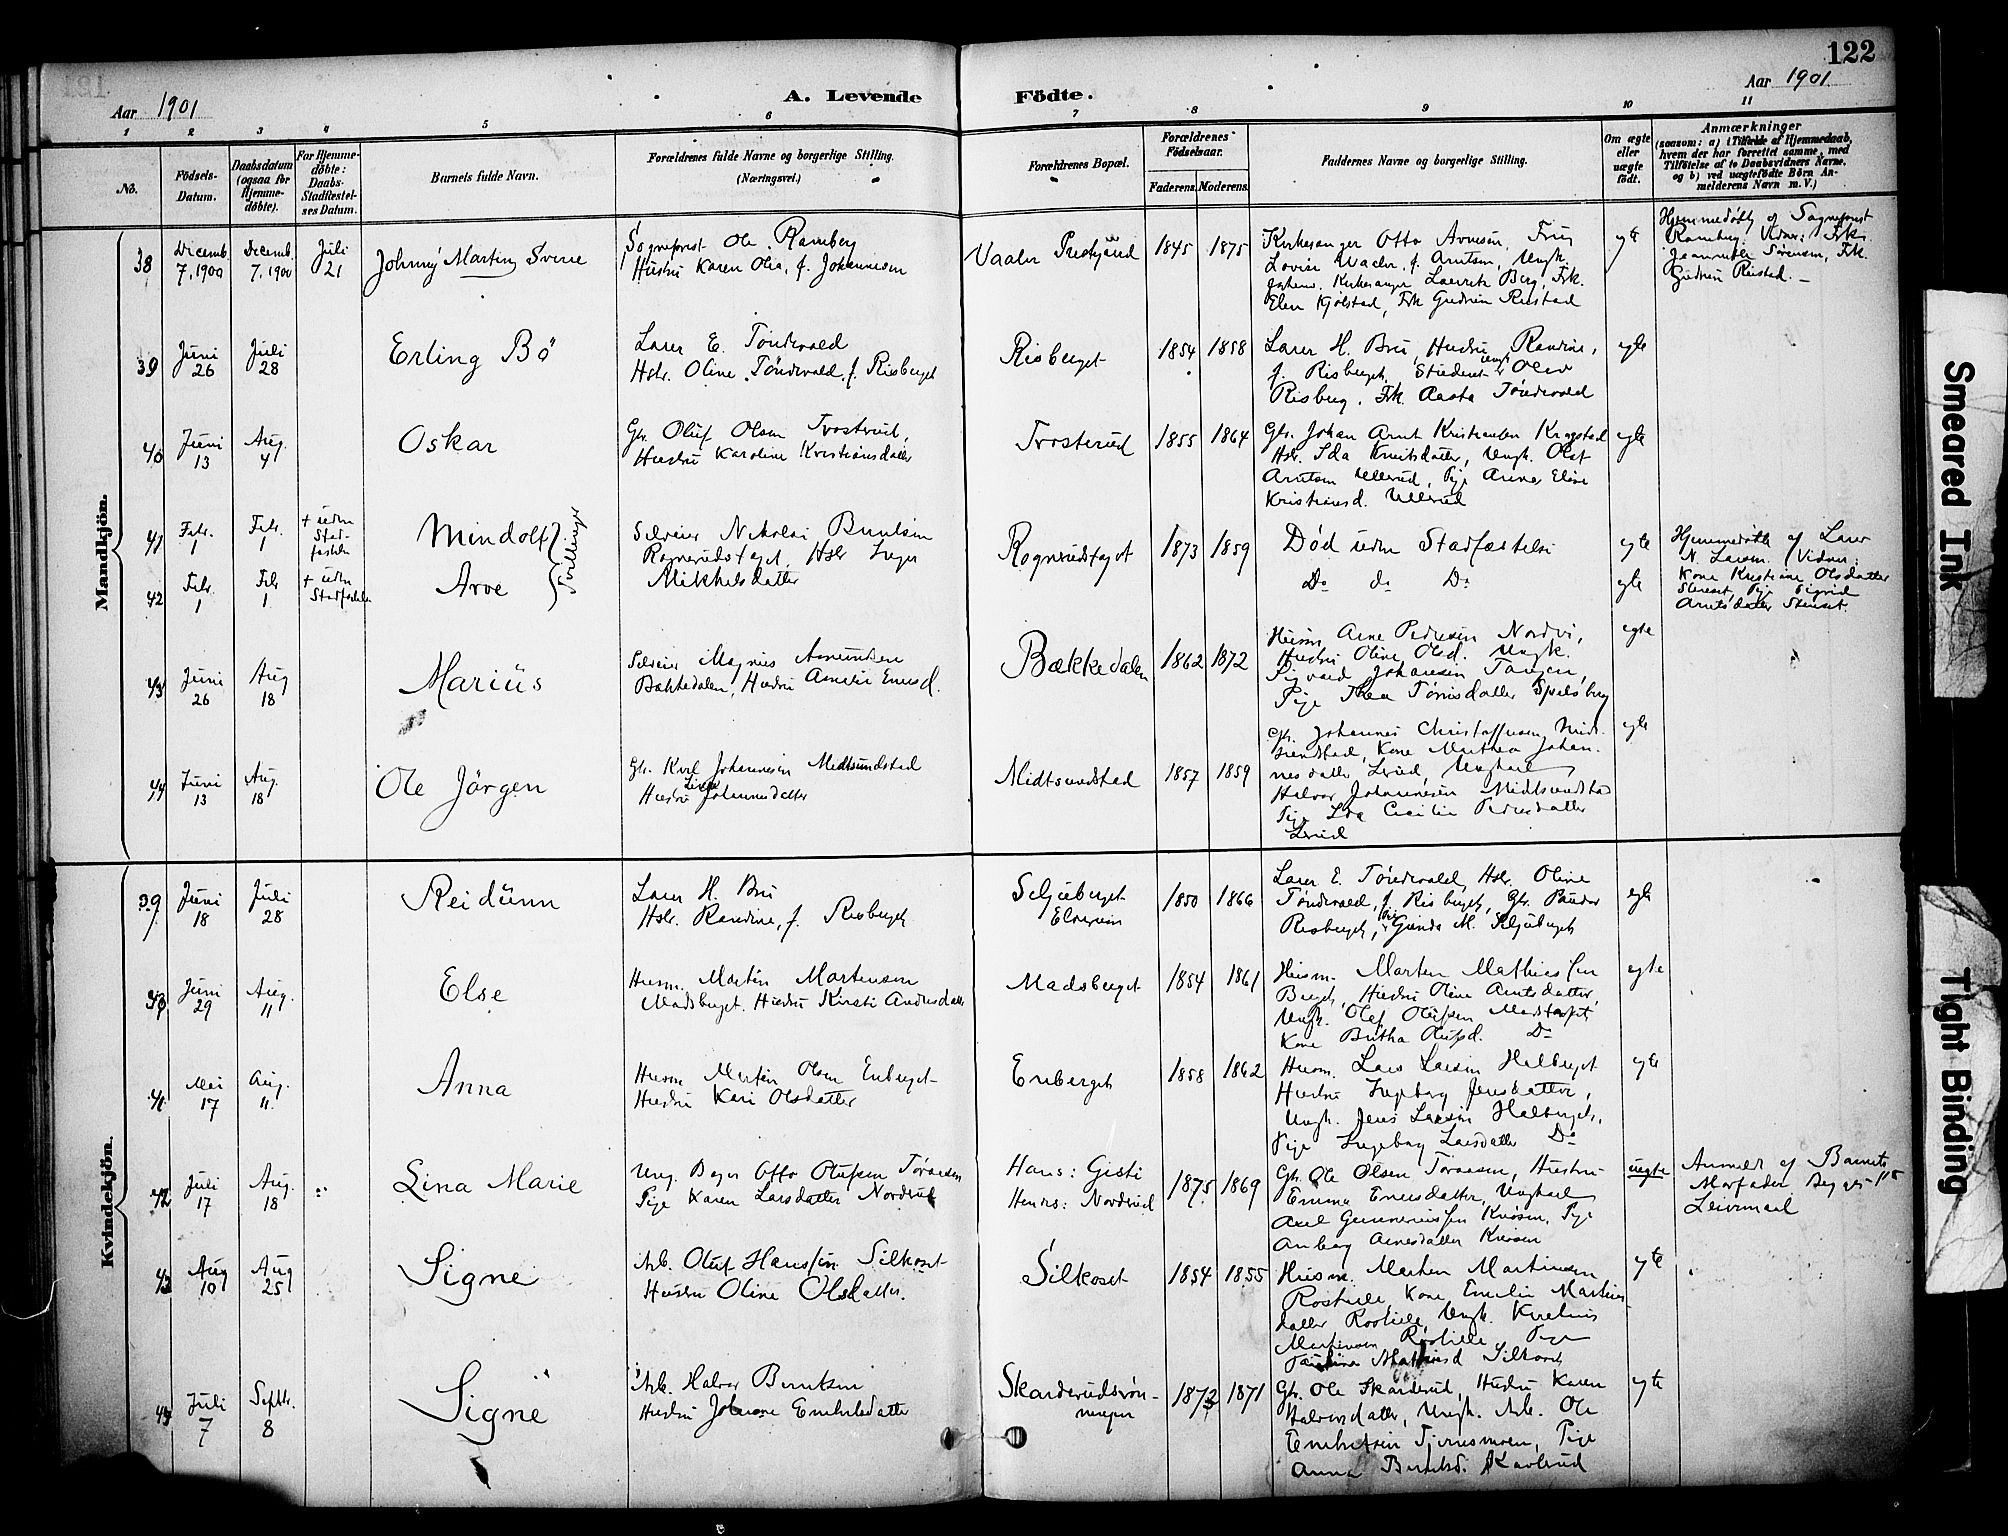 122
Aar 1901
A. Levende Födte.
Aar 1901
1 2 3 4 5 6 7 8 9 10 11
No.
Födsels-Datum.
Daabsdatum (ogsaa for Hjemme-döbte).
For Hjemme-döbte: Daabs-Stadfæstel-ses Datum.
Barnets fulde Navn.
Forældrenes fulde Navne og borgerlige Stilling.
(Næringsvei.)
Forældrenes Bopæl.
Forældrenes Födselsaar.
Faderens. Moderens.
Faddernes Navne og borgerlige Stilling.
Om ægte eller uægte födt.
Anmærkninger
(saasom: a) Tilfælde af Hjemmedaab, hvem der har forrettet samme, med Tilföielse af to Daabsvidners Navne, og b) ved uægtefödte Börn Anmelderens Navn m. V.)
Mandkjön.
38 Decemb. 7, 1900 Decemb. 7, 1900 Juli 21
Johnny Martin Sverre
Sogneprest Ole Ramberg
Hustru Karen Olea, f. Johannesen
Vaaler Prestgaard 1845 1875
Kirkesanger Otto Arnesen, Fru
Kirkesanger Laurits Berg, Frk.
Elen Kjölstad, Frk Gudrun Rustad
egte
Hjemmedøbt af Sogneprest
Ramberg. Vidner: Frk.
Sørensen, Frk.
Gudrun Rustad. –
39 Juni 26 Juli 28
Erling Bö
Lærer E. Töndervald
Hstr. Oline Töndervald, f. Risberget
Risberget 1854 1858
Lærer H. Bru, Hustru Randine,
f. Risberget, Student Olav
Risberg, Frk. Aasta Töndervald
egte
40 Juni 13 Aug. 4
Oskar
Gbr. Oluf Olsen Trosterud,
Hustru Karoline Kristiansdatter
Trosterud 1855 1864
Gbr. Johan Arnt Kristiansen
Hstr. Ida Knutsdatter, Ungk. Olaf
Arntsen Ullerud, Pige Anna Eline
Kristiansd. Ullerud
egte
41 Febr. 1 Febr. 1 + uden Stad-festelse
Mindolf
42 Febr. 1 Febr 1 + uden Stadfestelse
Arve
Tvillinger
Selveier Nikolai Berntsen
Rognerudstaget, Hstr Inger
Mikkelsdatter
Rognrudstaget 1873 1859
Død uden Stadfæstelse
Do do Do
egte
egte
Hjemmedøbt af Lærer
N. Larsen. Vidner:
Kone Kristiane Olsdatter
Stenset, Pige Sigrid
Arntsdatter Stenset.
43 Juni 26 Aug 18
Marius
Selveier Magnus Amundsen
Bækkedalen, Hustru Amalie Emesd.
Bækkedalen 1862 1872
Husm. Arne Pedersen Nordvi,
Hustru Oline Olsd. Ungk.
Sigvard Johansen Tangen,
Pige Thea Tønisdatter Spelsberg
egte
44 Juni 13 Aug. 18
Ole Jörgen
Gbr. Karl Johannesen Midtsundstad
Hustru Johannesdatter
Midtsundstad 1857 1859
Gbr. Johannes Christoffersen Midt-
sundstad, Kone Marthea Johan-
nesdatter Lerud, Ungkarl
Halvor Johannesen Midtsundstad
Pige Ida Cecilie Pedersdatter
Lerud
egte
Kvindekjön.
39 Juni 18 Juli 28
Reidunn
Lærer H. Bru
Hstr. Randine, f. Risberget
Seljuberget
Elverum
1850 1866
Lærer E. Töndervald, Hstr. Oline
Töndervald, f. Risberget, Gbr. Peder
Risberget, Gunda M. Seljuberget
egte
40 Juni 29 Aug. 11
Else
Husm. Martin Martinsen
Madsberget. Hustru Kirsti Andersdatter
Madsberget 1854 1861
Husm. Martin Mathiesen
Berget, Hustru Oline Arntsdatter,
Ungk. Olaf Olufsen
Kone Berthe Olufsd. Do
egte
41 Mai 17 Aug. 11
Anna
Husm Martin Olsen Enberget
Hustru Kari Olsdatter
Enberget 1858 1862
Husm. Lars Larsen Halberget
Hustru Ingeborg Jensdatter,
Ungk. Jens Larsen Halberget,
Pige Ingeborg Larsdatter Do
egte
42 Juli 17 Aug. 18
Lina Marie
Ung. Bager Otto Olufsen Töraasen
Pige Karen Larsdatter Nordrud
Hans: Gisti
Hendes: Nordrud
1875 1869
Gbr. Ole Olsen Töraasen, Hustru
Emma Emesdatter, Ungkarl
Axel Gunneriussen Kvösen, Pige
Anborg Arnesdatter Kvösen
uegte
Anmeldt af Barnets
Morfader
43 Aug 10 Aug 25
Signe
Arb. Oluf Hanssen Silkoset
Hustru Oline Olsdatter.
Silkoset 1854 1855
Husm. Martin Martinsen
Rostille Kone Emelie Martins-
datter Rostille, Ungk. Karelius
Martinsen Rostille, Pige
Silkoset
egte
44 Juli 7 Septbr. 8
Signe
Arb. Halvor Berntsen
Hustru Johanne Embretsdatter
Skarderudsrön-
ningen
1873 1871
Gbr. Ole Skarderud, Hustru Karen
Halvorsdatter, Ungk. Arb. Ole
Embretsen Tjernsmoen, Pige
Anna Berntsd. Skavlerud
egte
Smeared Ink
Tight Binding